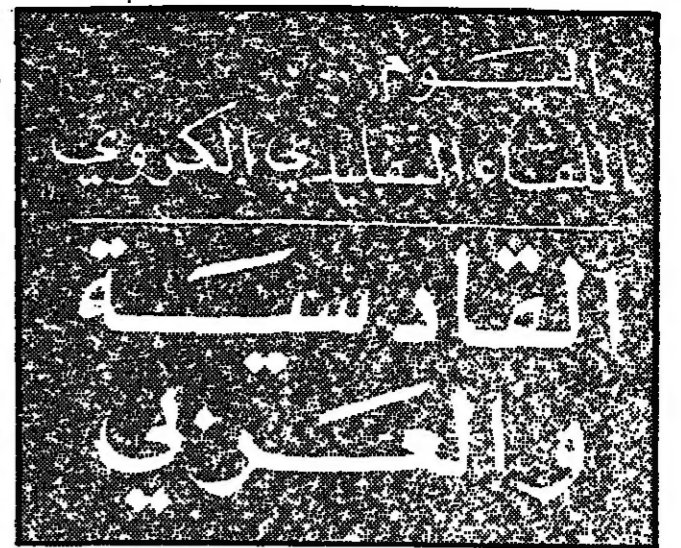 اليوم
اللقاء التقليدي الكروي
القادسية
والعربي